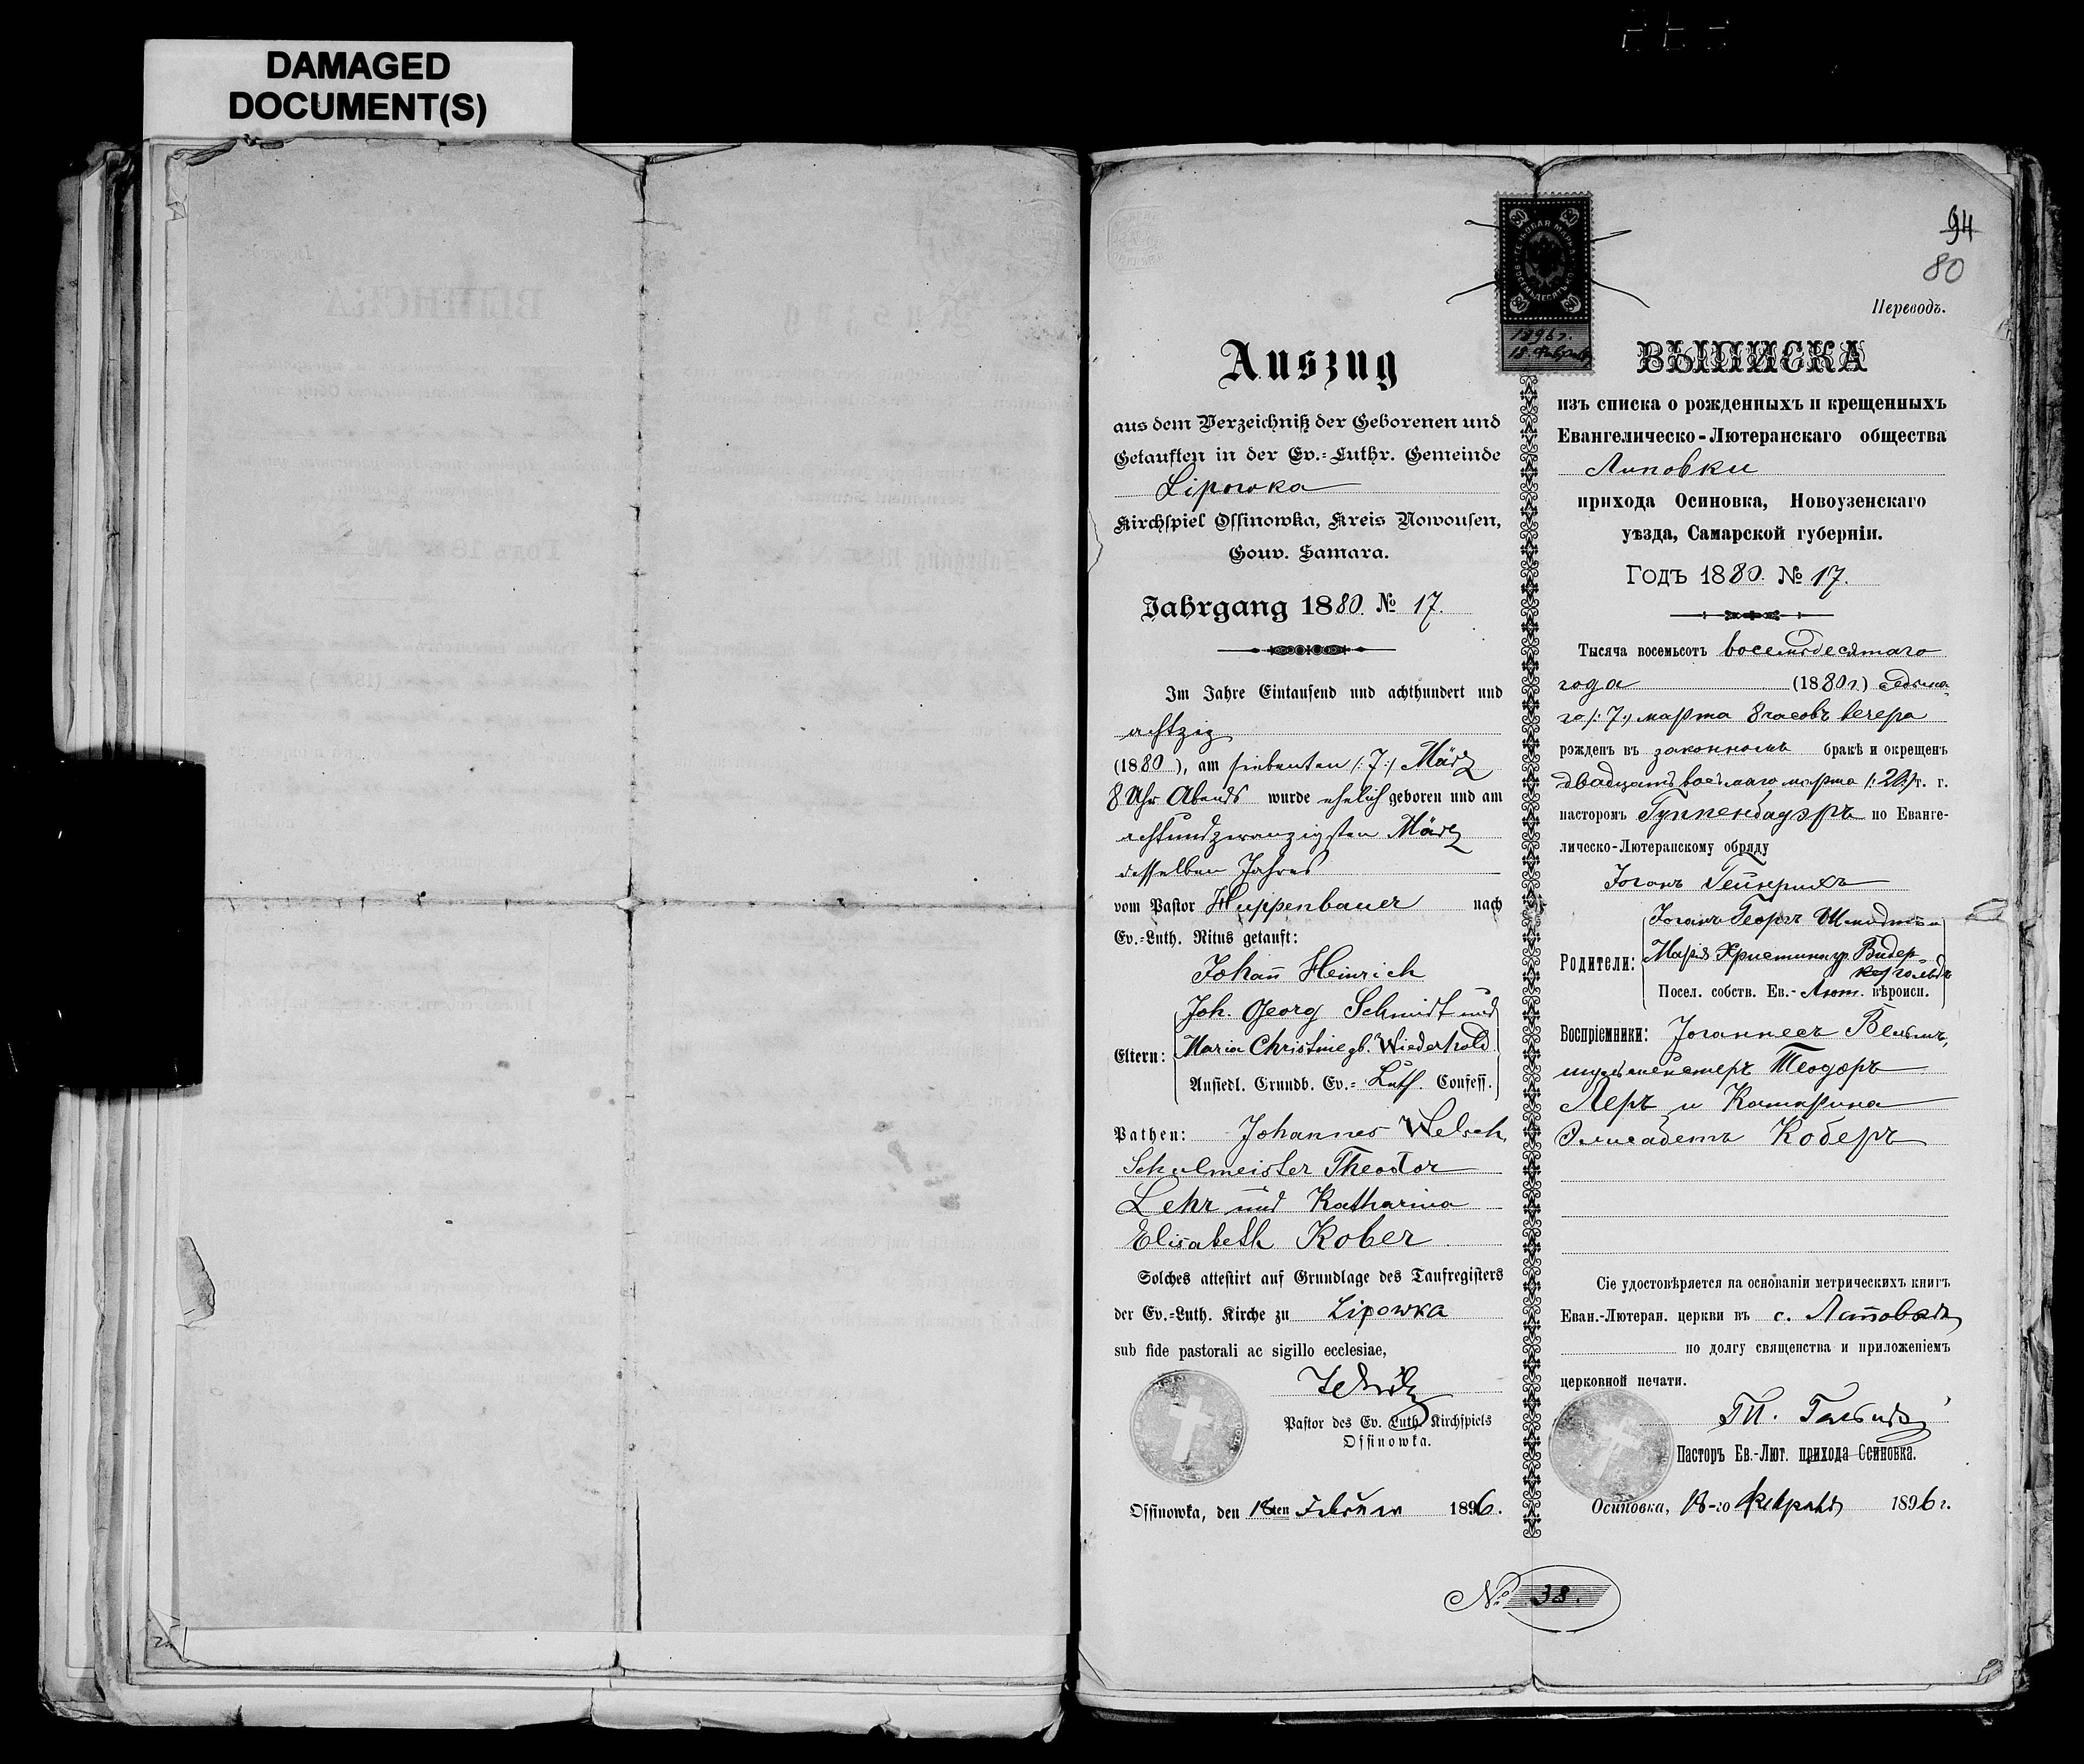 DAMAGED
DOCUMENT(S)
94
80
Переводъ.
1896 г.
18. Февраля
Auszug
aus dem Verzeichniß der Geborenen und
Getauften in der Ev.-Luthr. Gemeinde
Lipowka
Kirchspiel Ossinowka, Kreis Nowousen,
Gouv. Samara.
Jahrgang 1880. № 17.
Im Jahre Eintausend und achthundert und
achtzig
(1880), am siebenten /:7:/ März
8 Uhr Abends wurde ehelich geboren und am
achtundzwanzigsten März
desselben Jahres
vom Pastor Huppenbauer nach
Ev.-Luth. Ritus getauft:
Johann Heinrich
Joh. Georg Schmidt und
Eltern: Maria Christine gb. Wiederhold.
Ansiedl. Grundb. Ev.- Luth. Confess.
Pathen: Johannes Welsch,
Schulmeister Theodor
Lehr und Katharina
Elisabeth Kober
Solches attestirt auf Grundlage des Taufregisters
der Ev.-Luth. Kirche zu Lipowka
sub fide pastorali ac sigillo ecclesiae,
Pastor des Ev. Luth. Kirchspiels
Ossinowka.
Ossinowka, den 18ten Februar 1896.
ВЫПИСКА
изъ списка о рожденныхъ и крещенныхъ
Евангелическо-Лютеранскаго общества
Липовки
прихода Осиновка, Новоузенскаго
уѣзда, Самарской губерніи.
Годъ 1880. № 17.
Тысяча восемьсотъ восемьдесятаго
года (1880 г.) седьма-
го /:7:/ марта 8 часовъ вечера
рожденъ въ законномъ бракѣ и окрещенъ
двадцать восьмаго марта /:28:/ т. г.
пасторомъ Гуппенбауэръ по Еванге-
лическо-Лютеранскому обряду
Іоганъ Гейнрихъ
Іоганъ Георгъ Шмидтъ и
Родители: Марія Христина ур. Видер-
гольдъ
Посел. собств. Ев.- Лют. вѣроисп.
Воспріемники: Іоганнесъ Вельшъ,
шульмейстеръ Теодоръ
Леръ и Катарина
Элисабетъ Коберъ
Сіе удостовѣряется на основаніи метрическихъ книгъ
Еван.-Лютеран. церкви въ с. Липовкѣ
по долгу священства и приложеніемъ
церковной печати.
Пасторъ Ев.-Лют. прихода Осиновка.
Осиновка, 18-го Февраля 1896 г.
№ 38.